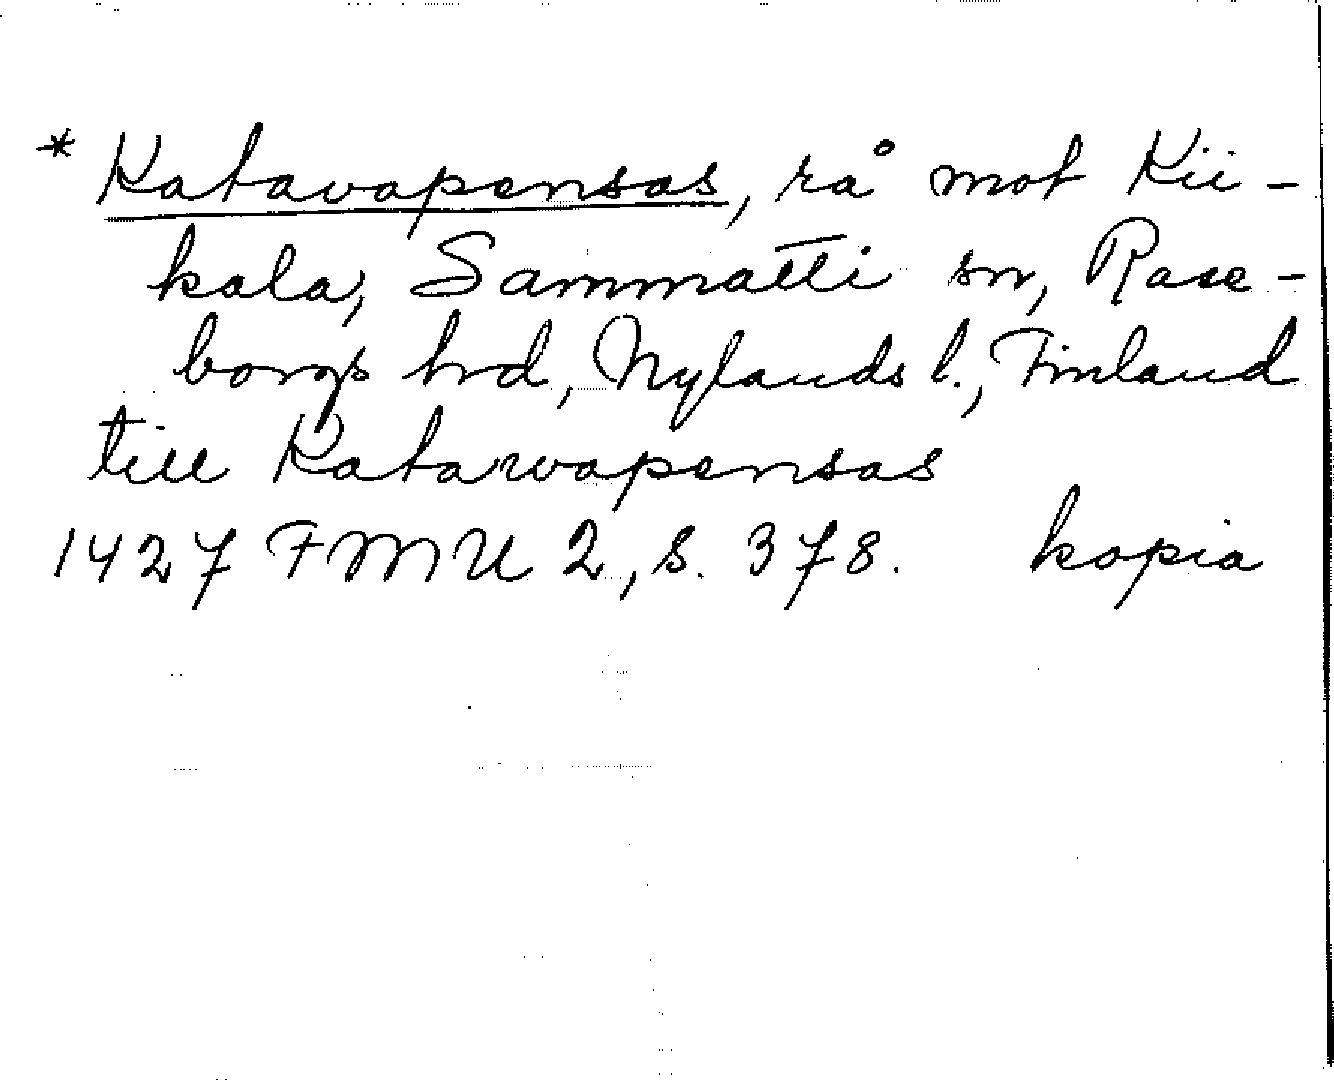 * Katavapensas, rå mot Kii-
kala, Sammatti sn, Rase-
borgs hrd, Nylands l., Finland
till Katarwapensas
1427 FMU 2, s. 378. kopia